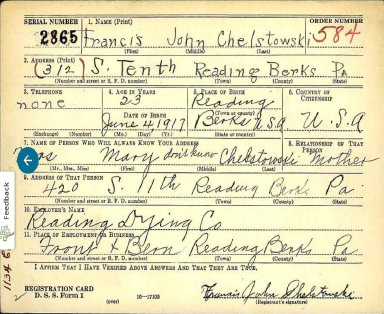 SERIAL NUMBER 1. NAME (Print) ORDER NUMBER
2865 Francis John Chelstowski 584
(First) (Middle) (Last)
2. ADDRESS (Print)
(312) S. Tenth Reading Berks Pa
(Number and street or R. F. D. number) (Town) (County) (State)
3. TELEPHONE 4. AGE IN YEARS 5. PLACE OF BIRTH 6. COUNTRY OF CITIZENSHIP
none 23 Reading
DATE OF BIRTH (Town or county)
June 4 1917 Berks USA U.S.A
(Exchange) (Number) (Mo.) (Day) (Yr.) (State or country)
7. NAME OF PERSON WHO WILL ALWAYS KNOW YOUR ADDRESS 8. RELATIONSHIP OF THAT PERSON
Mary don't know Chelstowski Mother
(Mr., Mrs., Miss) (First) (Middle) (Last)
9. ADDRESS OF THAT PERSON
420 S. 11th Reading Berks Pa.
(Number and street or R. F. D. number) (Town) (County) (State)
10. EMPLOYER'S NAME
Reading Dying Co
11. PLACE OF EMPLOYMENT OR BUSINESS
Front & Bern Reading Berks Pa
(Number and street or R. F. D. number) (Town) (County) (State)
I AFFIRM THAT I HAVE VERIFIED ABOVE ANSWERS AND THAT THEY ARE TRUE.
REGISTRATION CARD
D. S. S. Form 1 (over) 16-17105 Francis John Chelstowski
(Registrant's signature)
Feedback